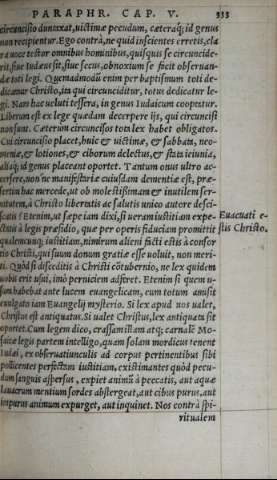 PARAPHR. CAP. V. 333
circuncisio duntaxat, uictimæ pecudum, cæteraq; id genus
non recipientur. Ego contrà, ne quid inscientes erretis, cla
ra uoce testor omnibus hominibus, quisquis se circuncide-
rit, siue Iudæus sit, siue secus, obnoxium se ficit obseruan-
dæ toti legi. Quemadmodũ enim per baptismum toti de-
dicamur Christo, ita qui circunciditur, totus dedicatur le-
gi. Nam hac ueluti tessera, in genus Iudaicum cooptetur.
Liberum est ex lege quædam decerpere ijs, qui circuncisi
non sunt. Cæterum circuncisos tota lex habet obligatos.
Cui circuncisio placet, huic & uictimæ, & sabbata, neo-
meniæ, & lotiones, & ciborum delectus, & stata ieiunia,
aliaq; id genus placeant oportet. Tantum onus ultro ac-
cersere, non ne manifestariæ cuiusdam dementiæ est, præ-
sertim hac mercede, ut ob molestissimam & inutilem ser-
uitutem, à Christo libertatis ac salutis unico autore desci-
scatis? Etenim, ut sæpe iam dixi, si ueram iustitiam expe-
ctatis à legis præsidio, quæ per operis fiduciam promittit
qualemcunq; iustitiam, nimirum alieni ficti estis à consor
tio Christi, qui suum donum gratiæ esse uoluit, non meri-
ti. Quòd si disceditis à Christi cõtubernio, ne lex quidem
uobis erit usui, imò perniciem adferet. Etenim si quem u-
sum habebat ante lucem euangelicam, eum totum amisit
exulgato iam Euangelij mysterio. Si lex apud uos ualet,
Christus est antiquatus. Si ualet Christus, lex antiquata sit
oportet. Cum legem dico, crassam illam atq; carnalẽ Mo-
saicæ legis partem intelligo, quam solam mordicus tenent
Iudæi, ex obseruatiunculis ad corpus pertinentibus sibi
pollicentes perfectam iustitiam, existimantes quòd pecu-
dum sanguis aspersus, expiet animũ à peccatis, aut aquæ
lauacrum mentium sordes abstergeat, aut cibus purus, aut
impurus animum expurget, aut inquinet. Nos contrà spi-
ritualem
Euacuati e-
stis Christo.